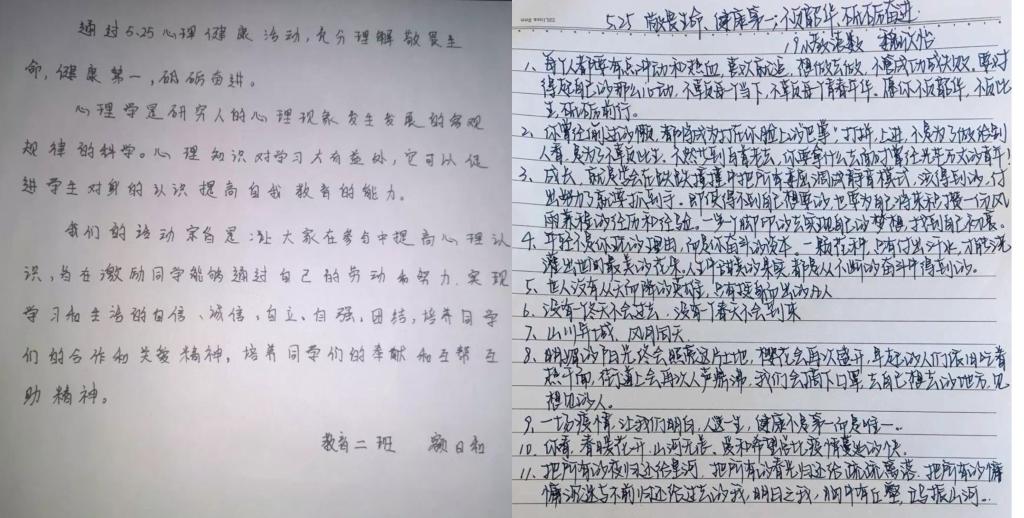 通过5.25心理健康活动，充分理解敬畏生
命，健康第一，砥砺奋进。
心理学是研究人的心理现象发生发展的客观
规律的科学。心理知识对学习大有益处，它可以促
进学生对身的认识提高自我教育的能力。
我们的活动宗旨是：让大家在参与中提高心理认
识，旨在激励同学能够通过自己的劳动和努力，实现
学习和生活的自信、诚信、自立、自强、团结，培养同学
们的合作和关爱精神，培养同学们的奉献和互帮互
助精神。
教育二班 额日和
5.25 敬畏生命，健康第一；不负韶华，砥砺奋进
1、每个人都要有点冲动和热血，喜欢就追，想做去做，不管成功或失败。要对
得起自己的那么心动，不辜负每个当下，不辜负每个青春年华。愿你不负韶华，不负此
生，砥砺前行。
2、你曾经偷过的懒，都将成为打在你脸上的巴掌"打拼上进，不是为了做给别
人看，是为了不辜负此生，不然她到白首老去，你要拿什么去面对曾经光年万丈的青年！
3、成长，就是学会在跌跌撞撞中把所有委屈调成静音模式，该得到的，付
出努力了就需抓到手。即使得不到自己想要的也要为自己将来积攒一份风
雨兼程的经历和经验。一步一个脚印的去实现自己的梦想，找到自己初衷。
4、年轻不是你玩的理由，而是你奋斗的资本。一颗花种，只有付出汗水，才能浇
灌出世间最美的花朵。人生甜美的果实，都是从不断的奋斗中得到的。
5、世人没有从天而降的英雄，只有挺身而出的凡人
6、没有一个冬天不会过去，没有一个春天不会到来
7、山川异域，风月同天
8、明媚的阳光终会照亮这片土地，樱花会再次盛开，
街道上会再次人声鼎沸，我们会摘下口罩，去自己想去的地方，见
想见的人。
9、一场疫情，让我们明白，人这一生，健康不是第一而是唯一。
10、你看，春暖花开，山河无恙，暖和希望总比疫情蔓延的快。
11、把所有的夜归还给星河，把所有的春光归还给疏疏篱落，把所有的慵
慵沉迷与不前归还给过去的我，明日之我，胸中有丘壑，立马振山河。